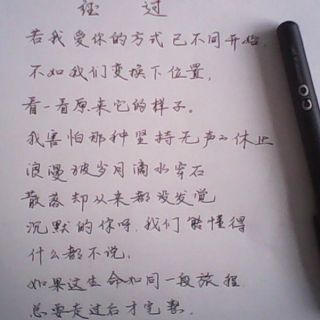 经过
若我爱你的方式已不同开始
不如我们变换下位置,
看一看原来它的样子。
我害怕那种坚持无声的休止
浪漫被岁月滴水穿石
散落却从来都没发觉
沉默的你呀,我们能懂得
什么都不说,
如果这生命如同一段旅程
总要走过后才完整.
CO